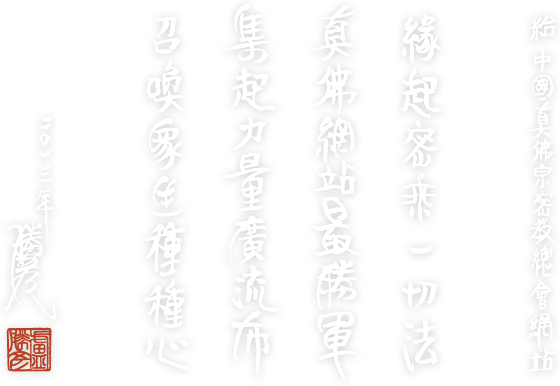 給中國真佛宗密教總會網站
緣起密乘一切法
真佛網站最勝軍
集起力量廣流布
召喚眾生種種心
二〇一二年
勝彥
盧勝彥